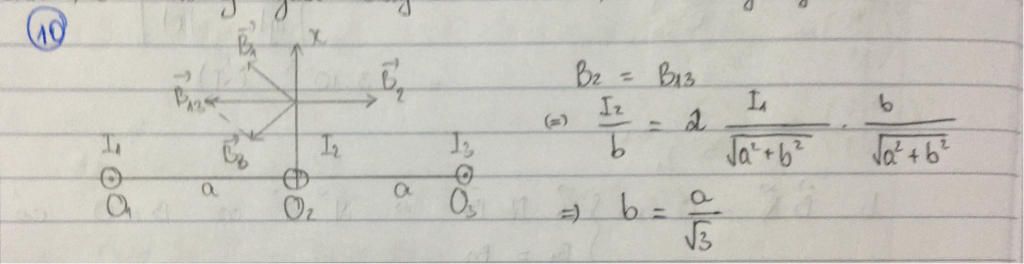 10
x
\vec{B_1}
\vec{B_{13}}
\vec{B_2}
\vec{B_3}
I_1
I_2
I_3
a
a
O_1
O_2
O_3
B_2 = B_{13}
(=) \frac{I_2}{b} = 2 \frac{I_1}{\sqrt{a^2+b^2}} \cdot \frac{b}{\sqrt{a^2+b^2}}
=) b = \frac{a}{\sqrt{3}}